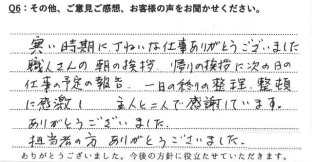 Q6：その他、ご意見ご感想、お客様の声をお聞かせください。
寒い時期に丁ねいな仕事ありがとうございました
職人さんの朝の挨拶、帰りの挨拶に次の日の
仕事の予定の報告、一日の終りの整理、整頓
に感激し　主人と二人で感謝しています。
ありがとうございました。
担当者の方　ありがとうございました。
ありがとうございました。今後の方針に役立たせていただきます。